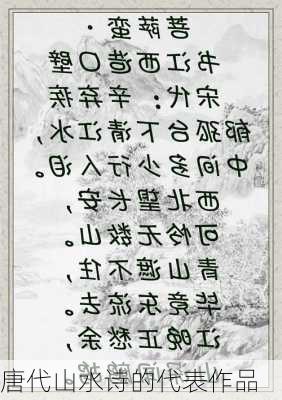 菩萨蛮·
书江西造口壁
宋代：辛弃疾
郁孤台下清江水，
中间多少行人泪。
西北望长安，
可怜无数山。
青山遮不住，
毕竟东流去。
江晚正愁余，
唐代山水诗的代表作品